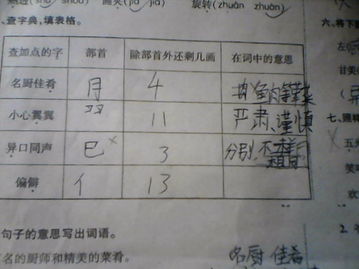 魅透(shù shòu) 圆夹(jiā jiá) 旋转(zhuǎn zhuàn)
查字典,填表格。
六、将下
查加点的字 部首 除部首外还剩几画 在词中的意思
左
甘美
名厨佳肴 月 4
小心翼翼 羽 11 严肃、谨慎
七、照样
异口同声 巳 3 分别,不
五
偏僻 亻 13
句子的意思写出词语。
名的厨师和精美的菜肴。 名厨佳肴